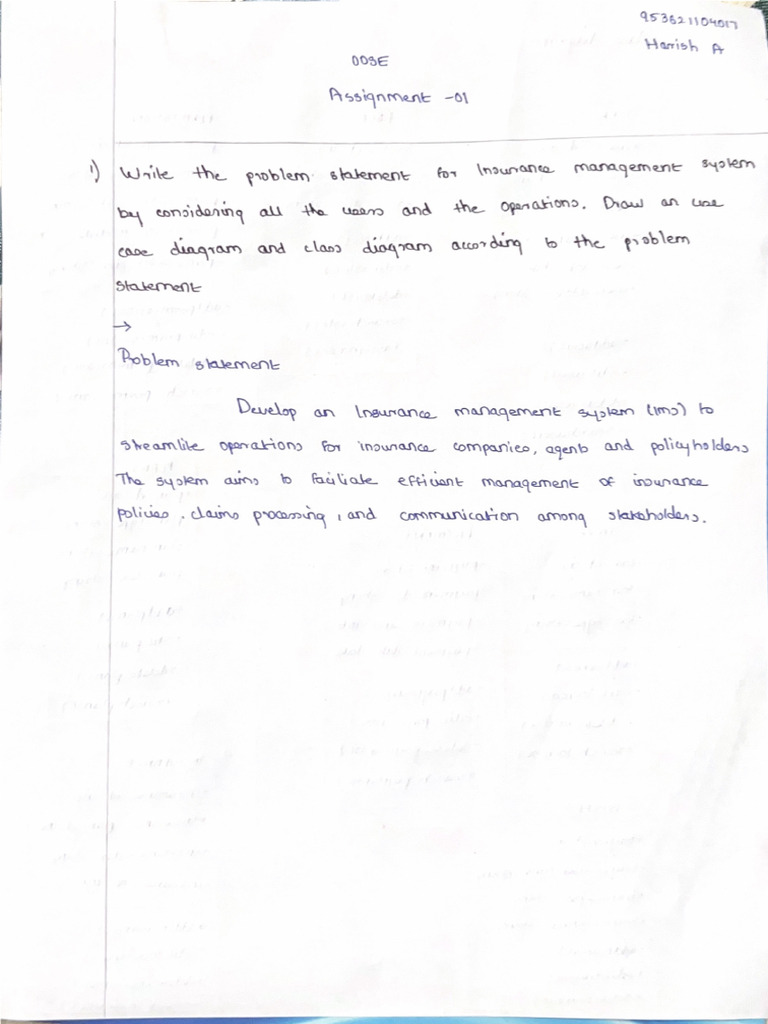 953621104017
Harrish A
OOSE
Assignment -01
1) Write the problem statement for Insurance management system
by considering all the users and the operations. Draw an use
case diagram and class diagram according to the problem
statement
→
Problem statement
Develop an Insurance management system (IMS) to
streamlile operations for insurance companies, agents and policyholders
The system aims to faciliate efficient management of insurance
policies, claims processing, and communication among stakeholders.